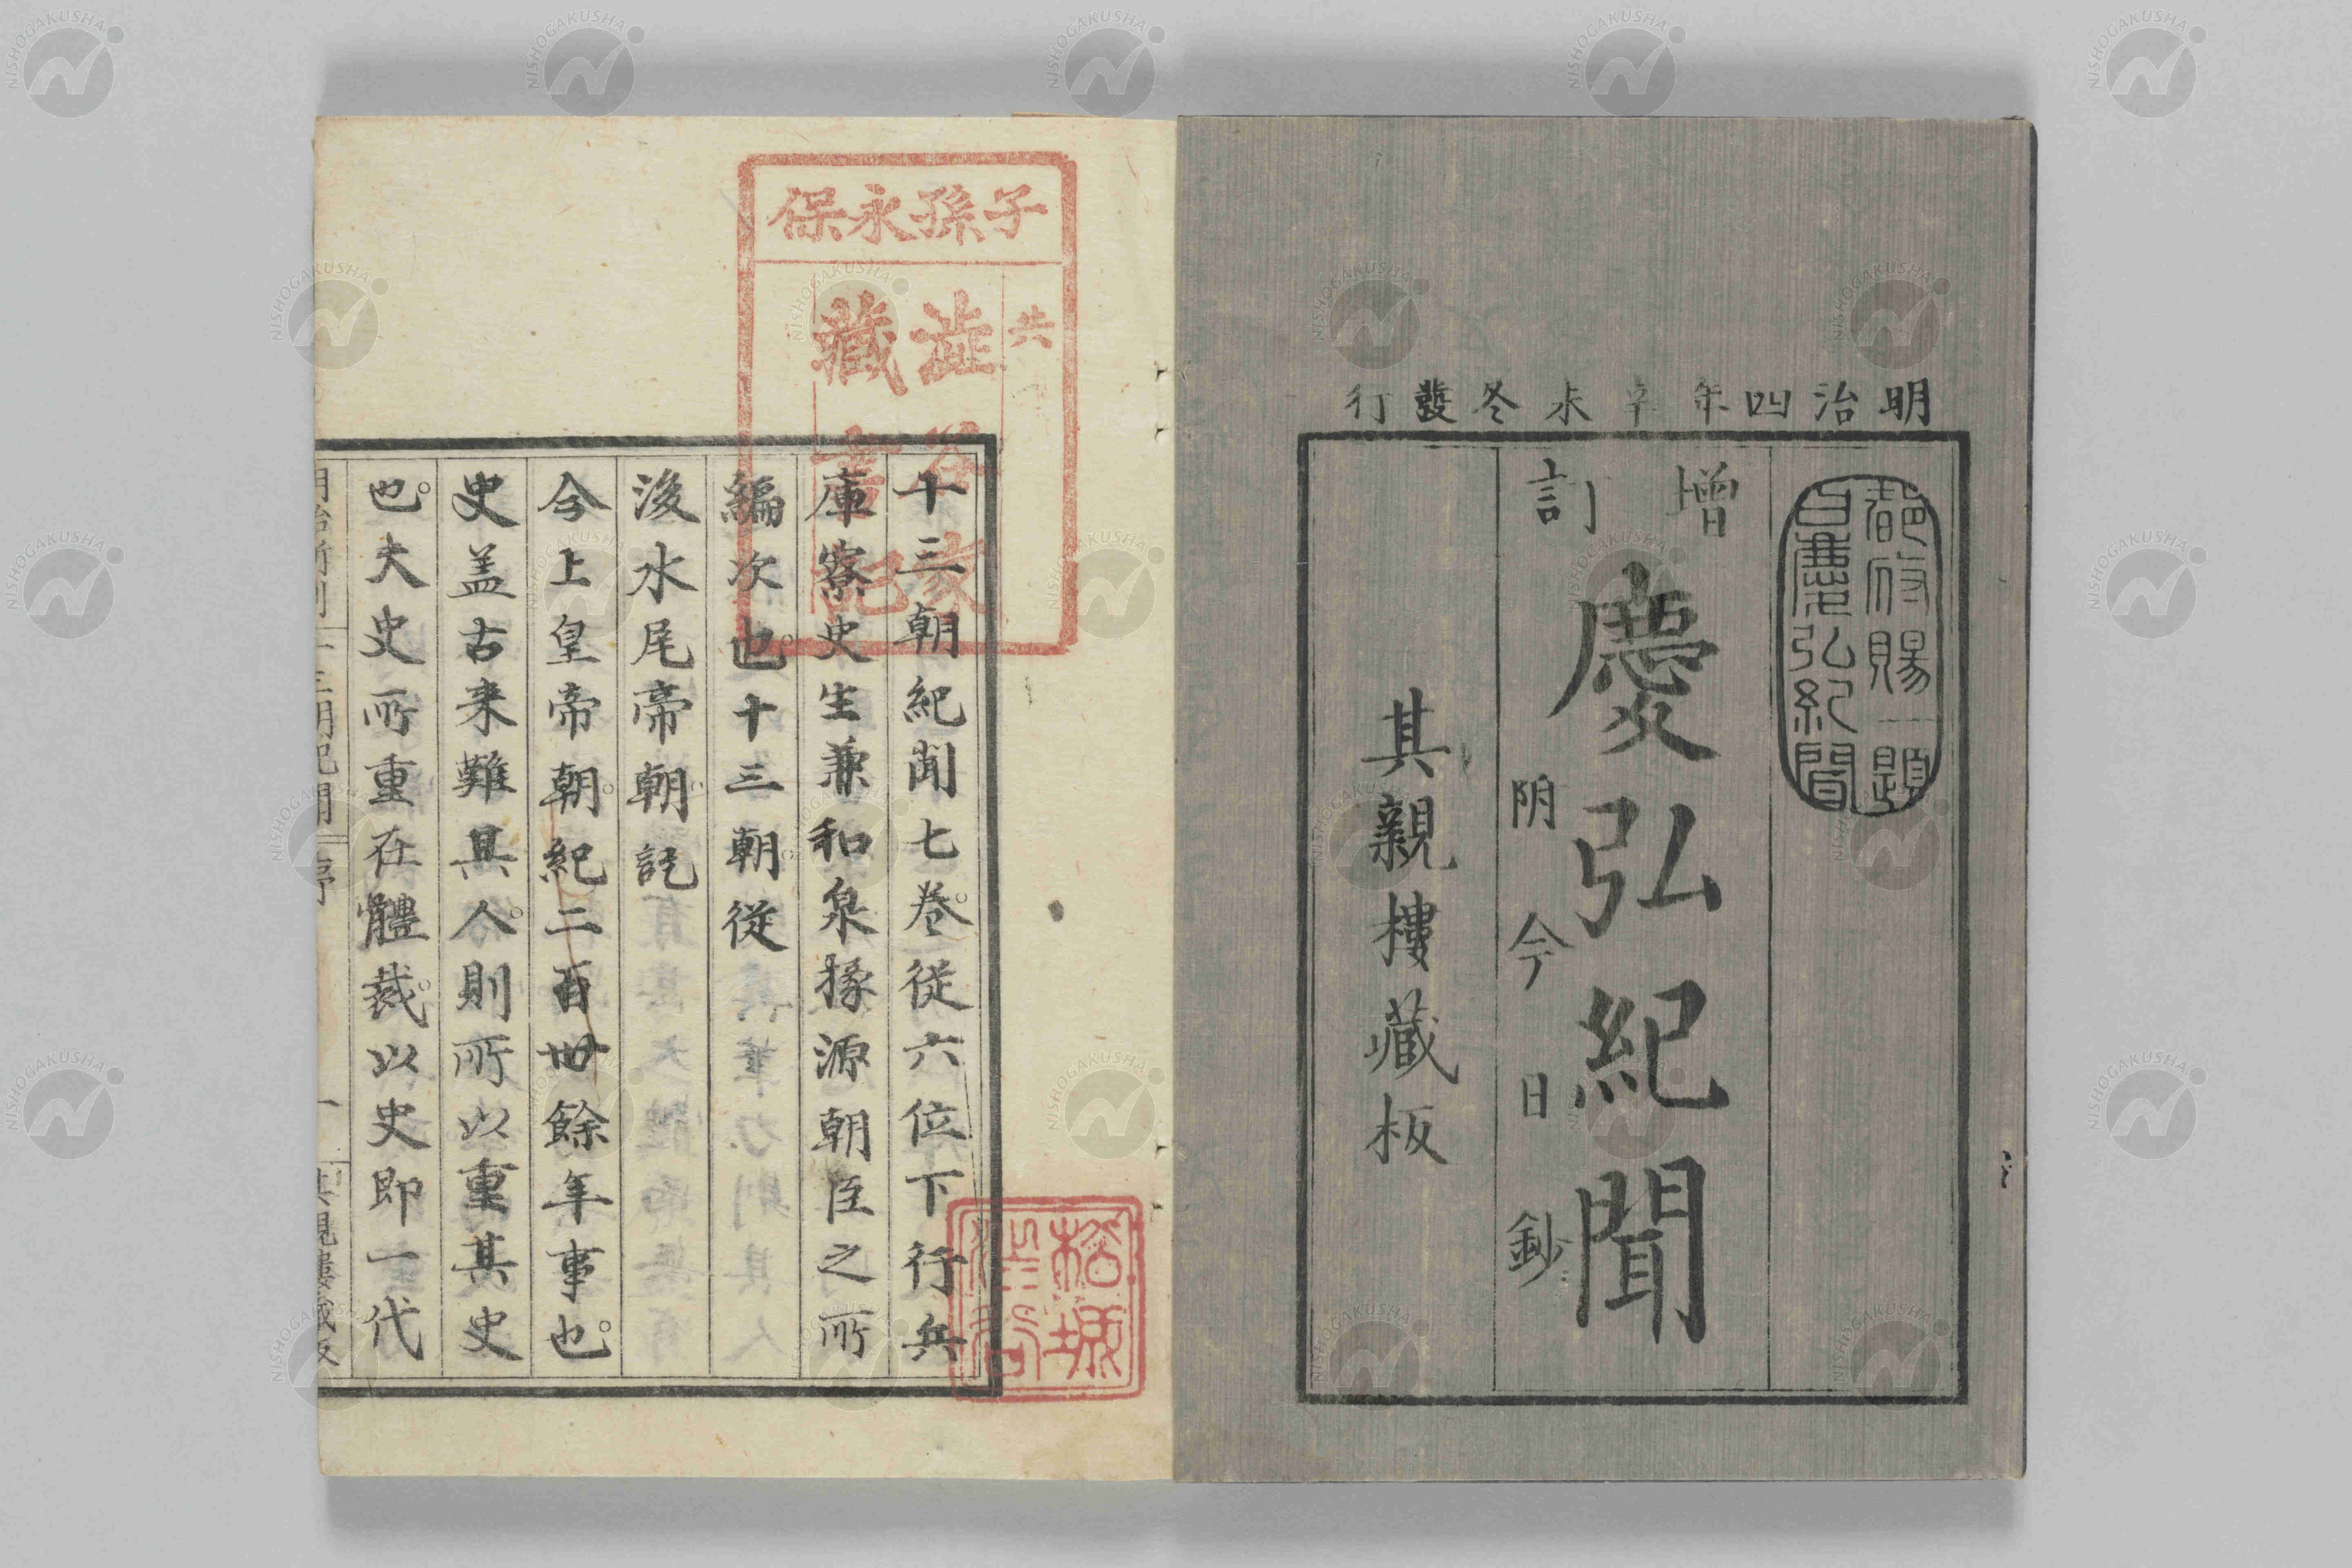 明治四年辛未冬發行
都府賜題
曰慶弘紀聞
增訂
慶弘紀聞
阴今日鈔
其親樓藏板
子孫永保
共
澁谷家
藏書記
十三朝紀聞七卷從六位下行兵
庫寮史生兼和泉掾源朝臣之所
編次也十三朝從
後水尾帝朝訖
今上皇帝朝紀二百卌餘年事也
史盖古来難具人則所以重其史
也夫史所重在體裁以史即一代
明治新刻
十三朝紀聞
序
一
其親樓藏板
NISHOGAKUSHA